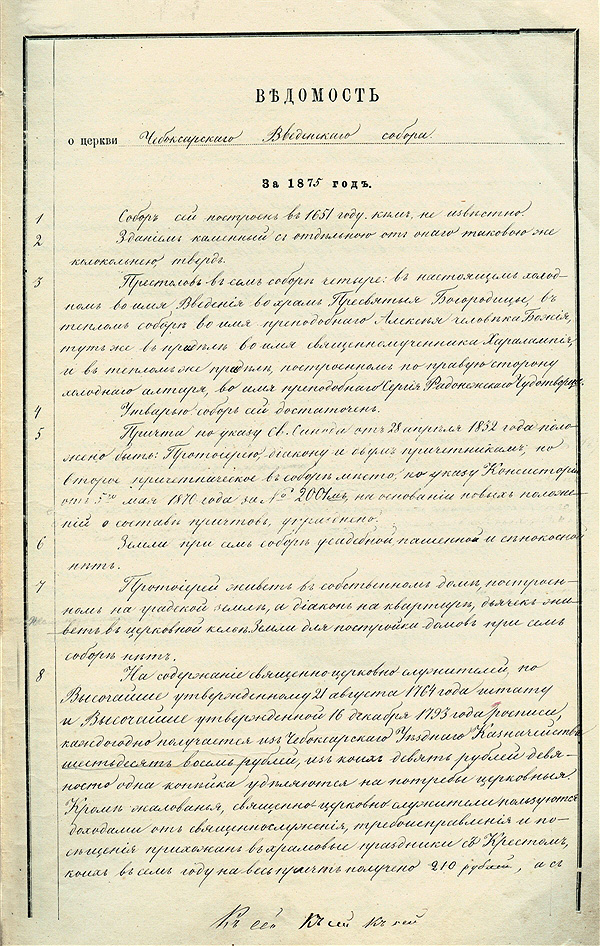 ВѢДОМОСТЬ
о церкви Чебоксарскаго Введенскаго собора.
За 1875 годъ.
1 Соборъ сей построенъ въ 1651 году. кѣмъ, не извѣстно.
2 Зданіемъ каменный съ отдѣльною отъ онаго таковою же
колокольнею, твердъ.
3 Престоловъ въ семъ соборѣ четыре: въ настоящемъ холод-
номъ во имя Введенія во храмъ Пресвятыя Богородицы, въ
тепломъ соборѣ во имя преподобнаго Алексѣя человѣка Божія,
тутъ же въ придѣлѣ во имя священномученника Харалампія,
и въ тепломъ же придѣлѣ, построенномъ по правую сторону
холоднаго алтаря, во имя преподобнаго Сергія Радонежскаго Чудотворца.
4 Утварью соборъ сей достаточенъ.
5 Причта по указу Св. Синода отъ 28 апрѣля 1832 года поло-
жено быть: Протоіерею, діакону и двумъ причетникамъ; но
второе причетническое въ соборѣ мѣсто, по указу Консисторіи
отъ 5го мая 1870 года за № 2001мъ, на основаніи новыхъ положе-
ній о составѣ причтовъ, упразднено.
6 Земли при семъ соборѣ усадебной, пашенной и сѣнокосной
нѣтъ.
7 Протоіерей живетъ въ собственномъ домѣ, построен-
номъ на градской землѣ, а діаконъ на квартирѣ, дьячекъ жи-
ветъ въ церковной кельѣ. Земли для постройки домовъ при семъ
соборѣ нѣтъ.
8 На содержаніе священно церковно служителей, по
Высочайше утвержденному 21 августа 1764 года штату
и Высочайше утвержденной 16 декабря 1793 года росписи,
каждогодно получается изъ Чебоксарскаго Уѣзднаго Казначейства
шестьдесятъ восемь рублей, изъ коихъ девять рублей девя-
носто одна копѣйка удѣляются на потребы церковныя.
Кромѣ жалованья, священно церковно служители пользуются
доходами отъ священнослуженія, требоисправленія и по-
сѣщенія прихожанъ въ храмовые праздники съ Крестомъ,
коихъ въ семъ году на весь причтъ получено 210 рублей, а съ
Къ сей Къ сей Къ сей